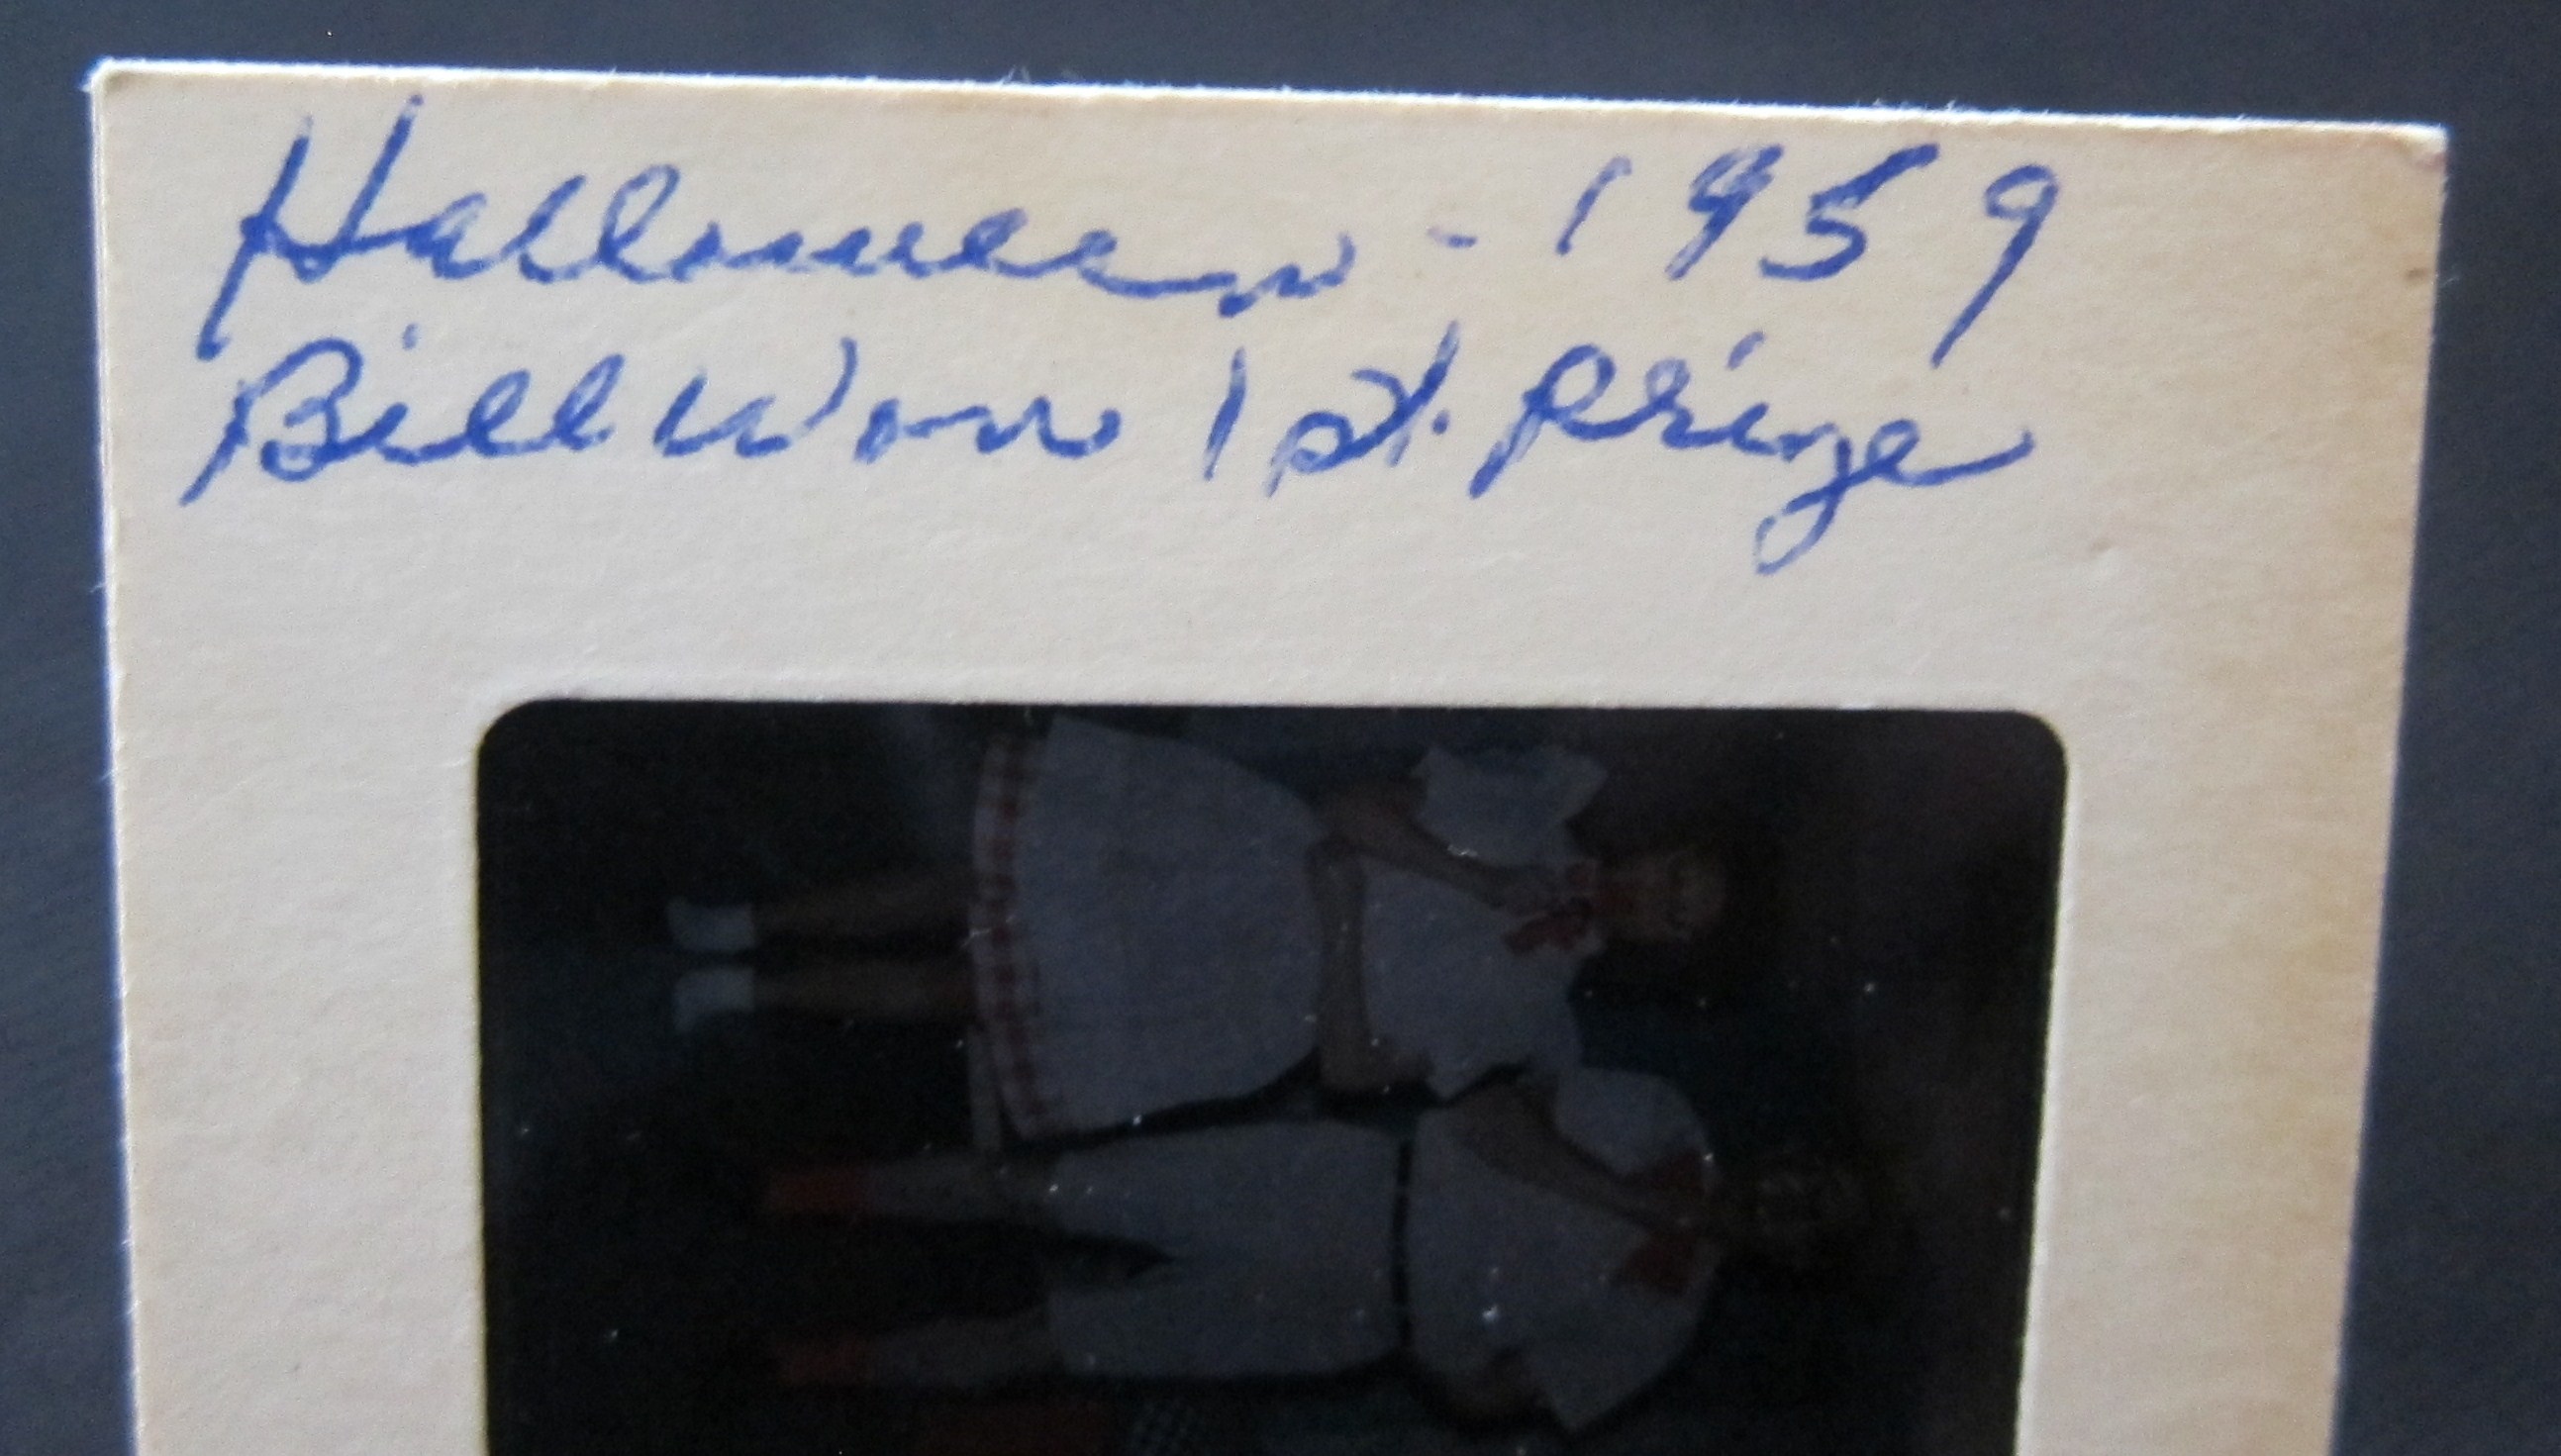 Halloween - 1959
Bill Won 1st. Prize